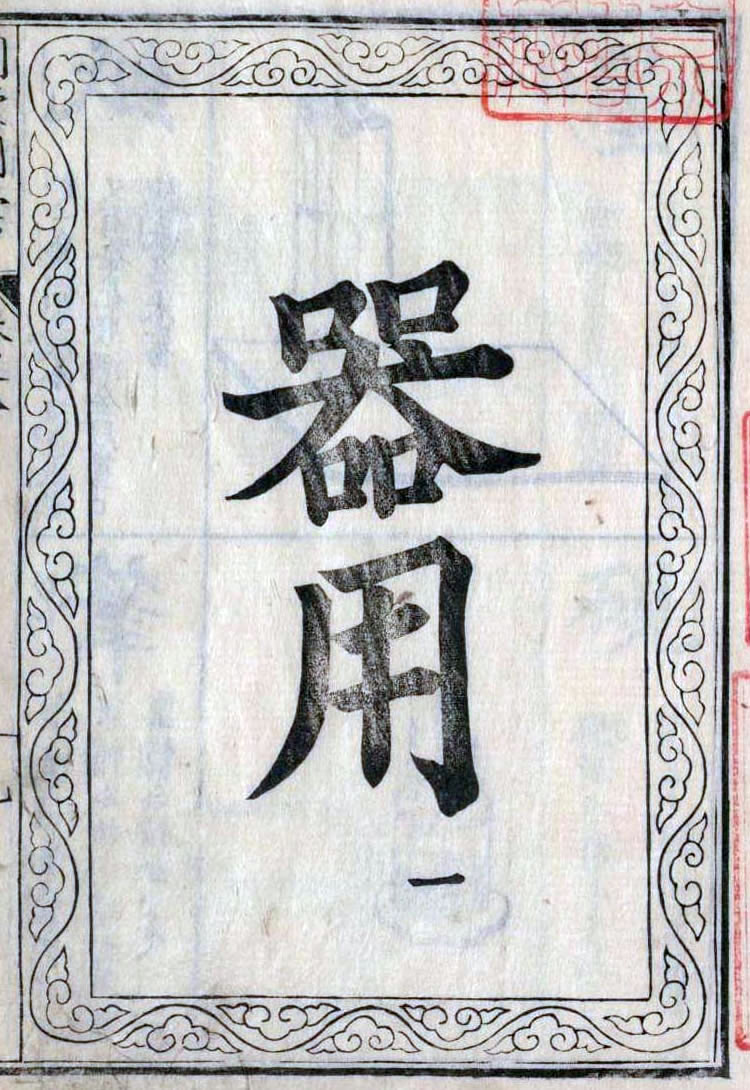 器用
一